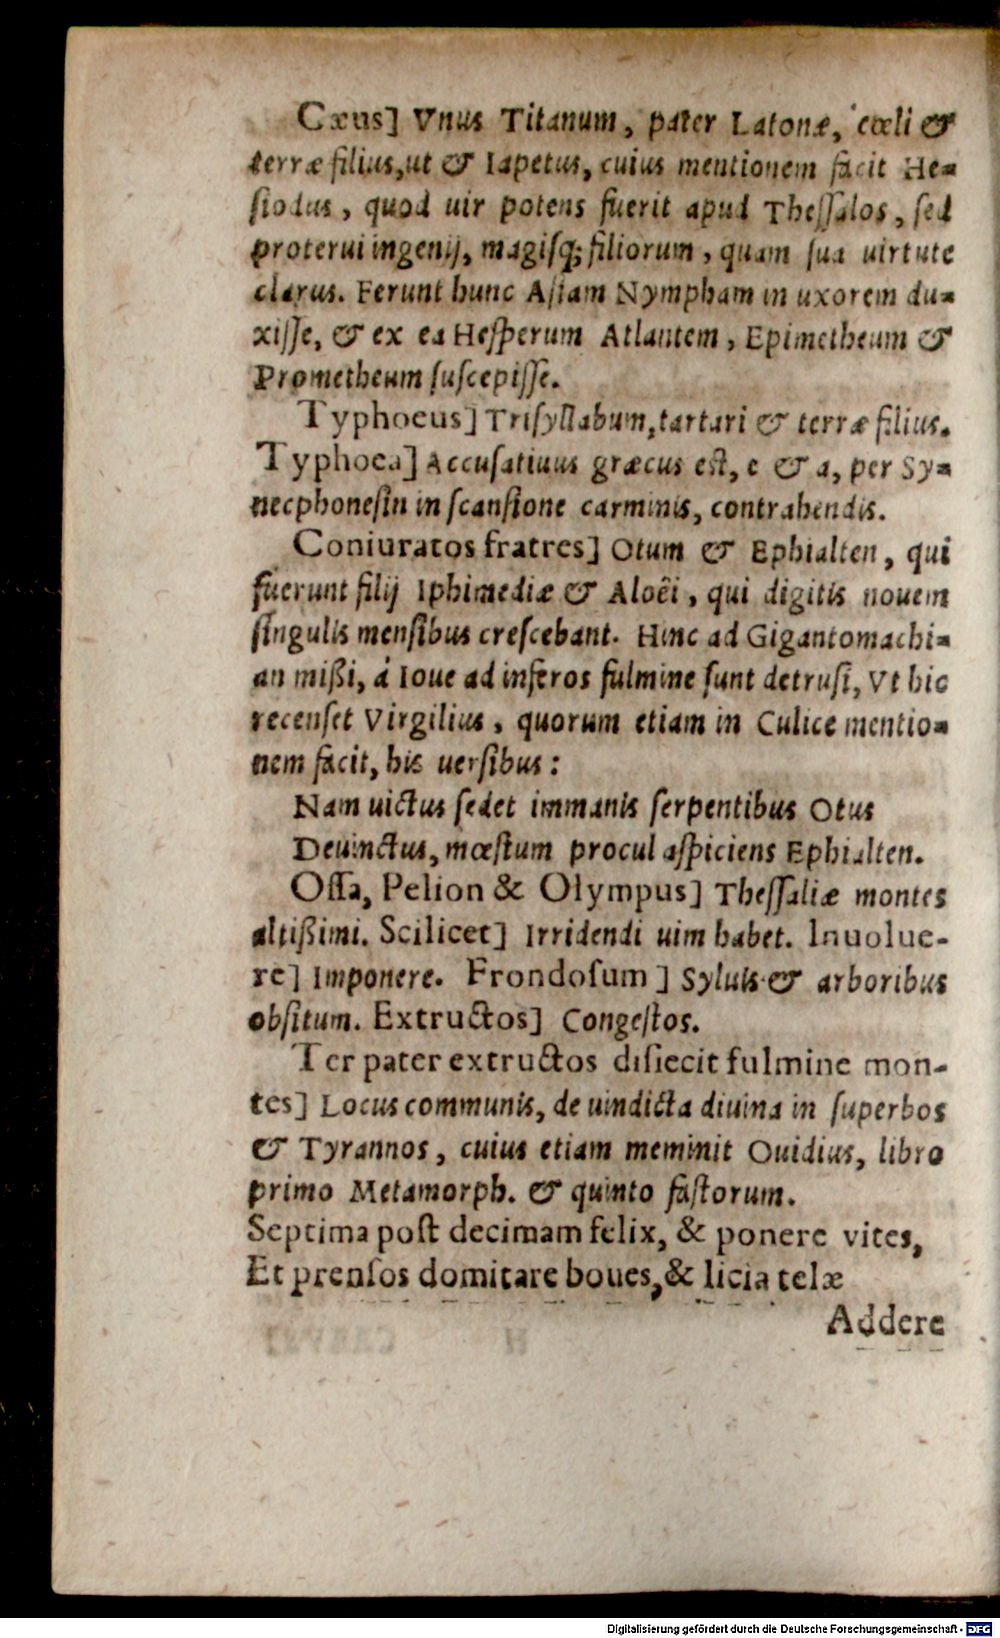 Cæus] Vnus Titanum, pater Latonæ, cœli &
terræ filius, ut & Iapetus, cuius mentionem facit He-
ſiodus, quod uir potens fuerit apud Theſſalos, ſed
proterui ingenij, magiſq; filiorum, quam ſua uirtute
clarus. Ferunt hunc Aſiam Nympham in uxorem du-
xiſſe, & ex ea Heſperum Atlantem, Epimetheum &
Prometheum ſuſcepiſſe.
Typhoeus] Triſyllabum, tartari & terræ filius.
Typhoea] Accuſatiuus græcus eſt, e & a, per Sy-
necphoneſin in ſcanſione carminis, contrahendis.
Coniuratos fratres] Otum & Ephialten, qui
fuerunt filij Iphimediæ & Aloëi, qui digitis nouem
ſingulis menſibus creſcebant. Hinc ad Gigantomachi-
an mißi, á Ioue ad inferos fulmine ſunt detruſi, Vt hic
recenſet Virgilius, quorum etiam in Culice mentio-
nem facit, his uerſibus:
Nam uictus ſedet immanis ſerpentibus Otus
Deuinctus, mœſtum procul aſpiciens Ephialten.
Oſſa, Pelion & Olympus] Theſſaliæ montes
altißimi. Scilicet] Irridendi uim habet. Inuolue-
re] Imponere. Frondoſum] Syluis & arboribus
obſitum. Extructos] Congeſtos.
Ter pater extructos diſiecit fulmine mon-
tes] Locus communis, de uindicta diuina in ſuperbos
& Tyrannos, cuius etiam meminit Ouidius, libro
primo Metamorph. & quinto faſtorum.
Septima poſt decimam felix, & ponere vites,
Et prenſos domitare boues, & licia telæ
Addere
Digitalisierung gefördert durch die Deutsche Forschungsgemeinschaft - DFG